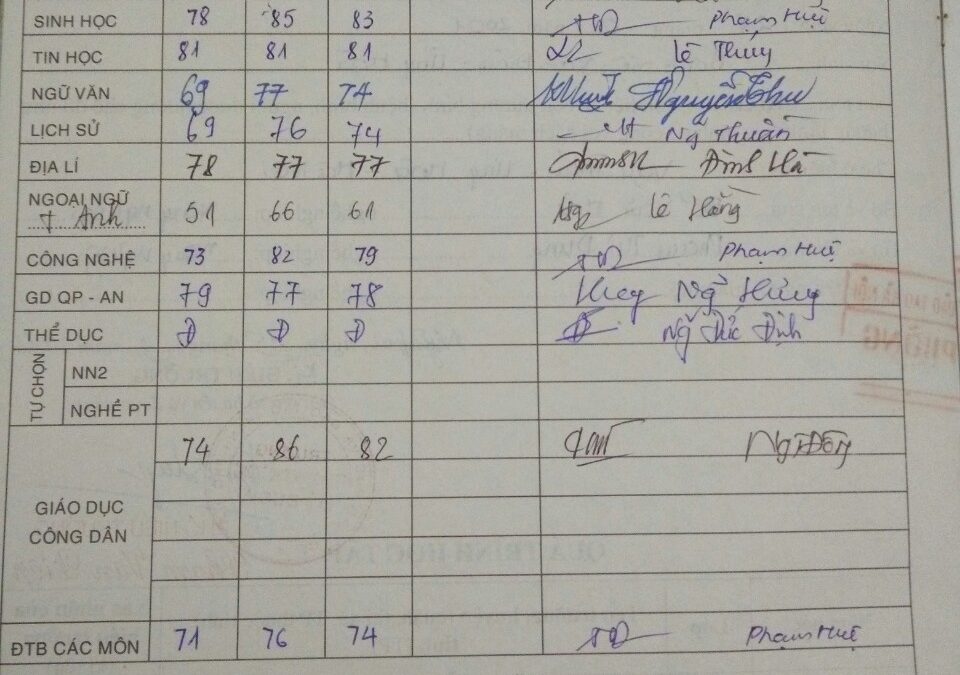 SINH HỌC 78 85 83 Phạm Huệ
TIN HỌC 81 81 81 Lê Thúy
NGỮ VĂN 69 77 74 Nguyễn Thu
LỊCH SỬ 69 76 74 Ng Thuần
ĐỊA LÍ 78 77 77 Đinh Hà
NGOẠI NGỮ
T. Anh 51 66 61 Lê Hằng
CÔNG NGHỆ 73 82 79 Phạm Huệ
GD QP - AN 79 77 78 Hùng
THỂ DỤC Đ Đ Đ Đức Định
TỰ CHỌN
NN2
NGHỀ PT
74 86 82
GIÁO DỤC
CÔNG DÂN
ĐTB CÁC MÔN 71 76 74 Phạm Huệ